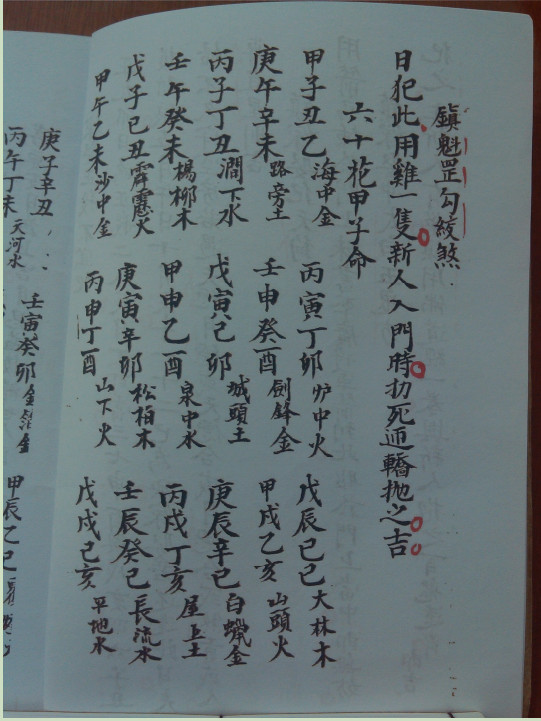 鎮魁罡勾絞煞
日犯此用雞一隻新人入門時扐死逥轎拋之吉
六十花甲子命
甲子丑乙海中金 丙寅丁卯炉中火 戊辰己巳大林木
庚午辛未路旁土 壬申癸酉劍鋒金 甲戌乙亥山頭火
丙子丁丑澗下水 戊寅己卯城頭土 庚辰辛巳白蠟金
壬午癸未楊柳木 甲申乙酉泉中水 丙戌丁亥屋上土
戊子己丑霹靂火 庚寅辛卯松柏木 壬辰癸巳長流水
甲午乙未沙中金 丙申丁酉山下火 戊戌己亥平地水
庚子辛丑 壬寅癸卯金箔金 甲辰乙巳
丙午丁未天河水